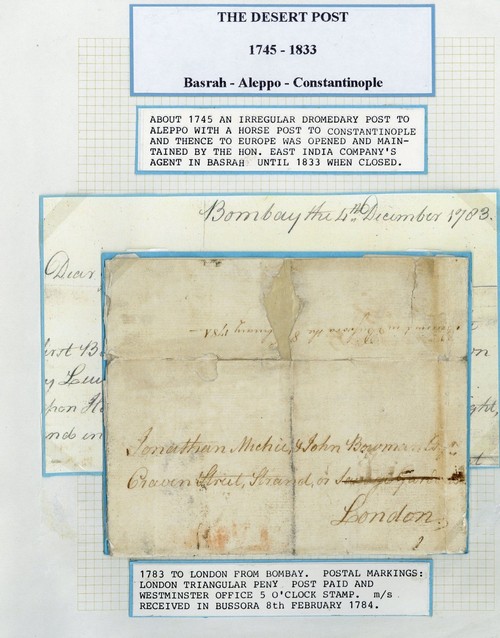 THE DESERT POST
1745 - 1833
Basrah - Aleppo - Constantinople
ABOUT 1745 AN IRREGULAR DROMEDARY POST TO
ALEPPO WITH A HORSE POST TO CONSTANTINOPLE
AND THENCE TO EUROPE WAS OPENED AND MAIN-
TAINED BY THE HON. EAST INDIA COMPANY'S
AGENT IN BASRAH UNTIL 1833 WHEN CLOSED.
Bombay the 4th December 1783.
Dear
Jonathan Michie, & John Bowman
Craven Street, Strand, or
London
1783 TO LONDON FROM BOMBAY. POSTAL MARKINGS:
LONDON TRIANGULAR PENY POST PAID AND
WESTMINSTER OFFICE 5 O'CLOCK STAMP. m/s
RECEIVED IN BUSSORA 8th FEBRUARY 1784.